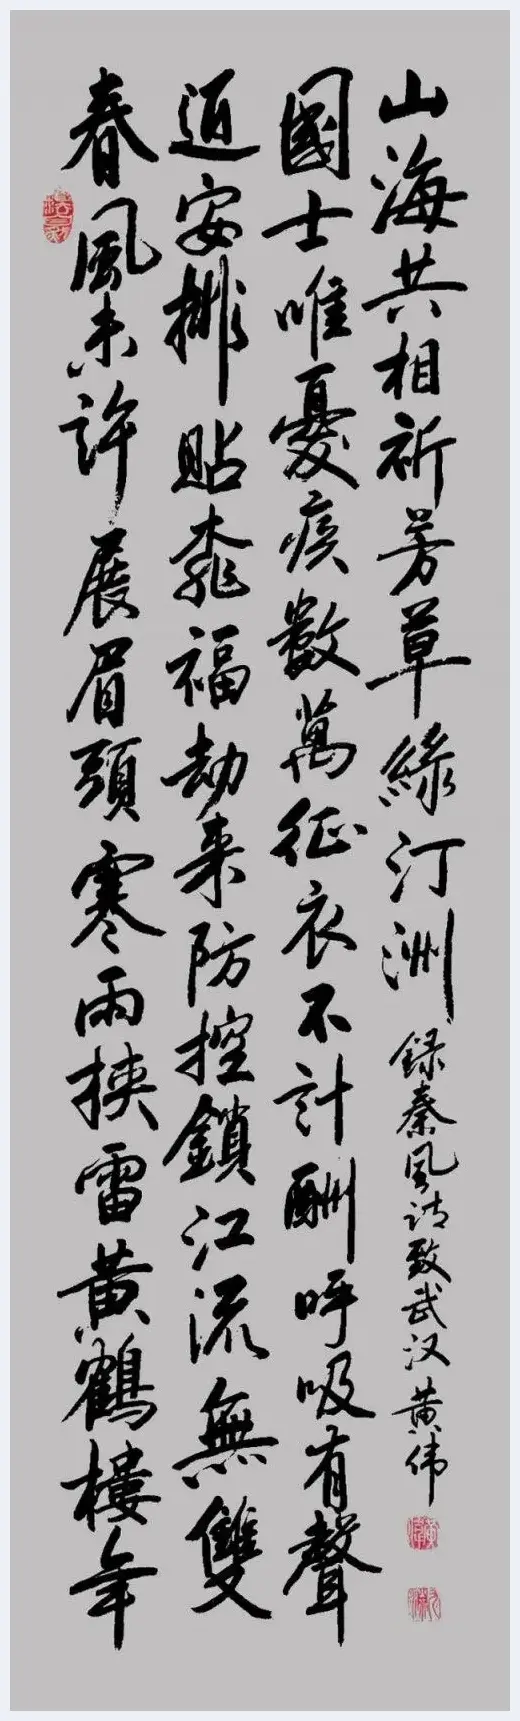 春風未許展眉頭寒雨挟雷黄鶴樓年
安排貼福劫来防控鎖江流無雙
國士唯憂疾數萬征衣不計酬呼吸有聲
山海共相祈芳草綠汀洲 録秦风诗致武汉 黄伟